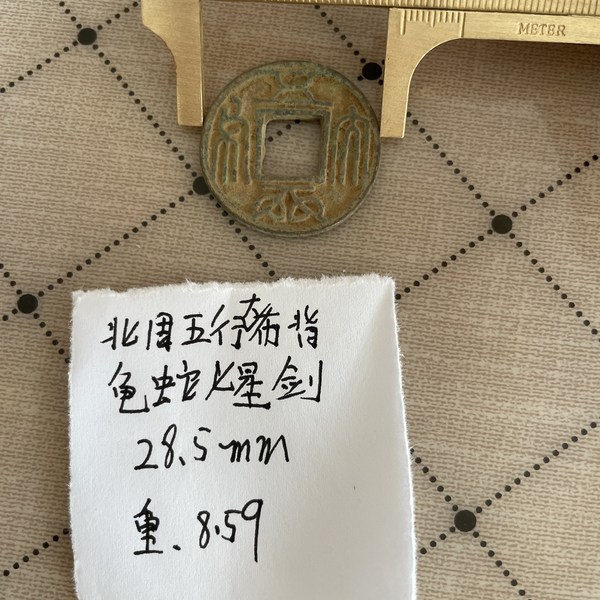 METER
北周五行大布背
龟蛇七星剑
28.5mm
重.8.5g